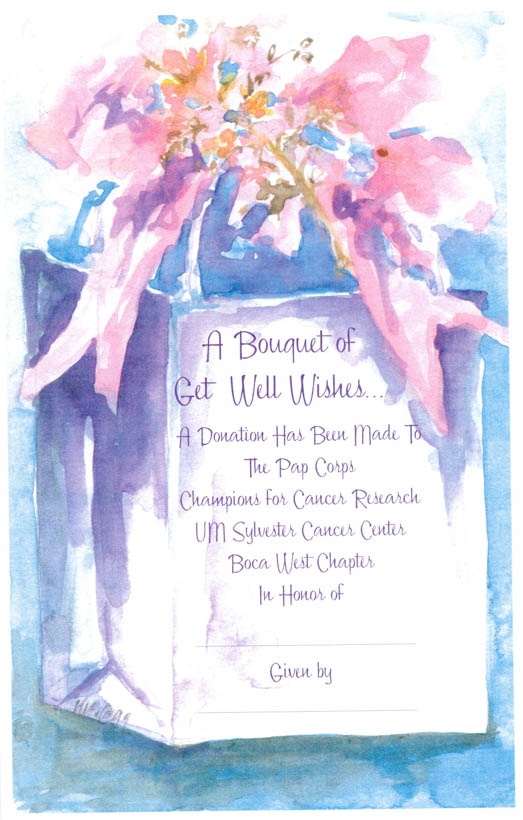 A Bouquet of
Get Well Wishes...
A Donation Has Been Made To
The Pap Corps
Champions For Cancer Research
UM Sylvester Cancer Center
Boca West Chapter
In Honor of
Given by